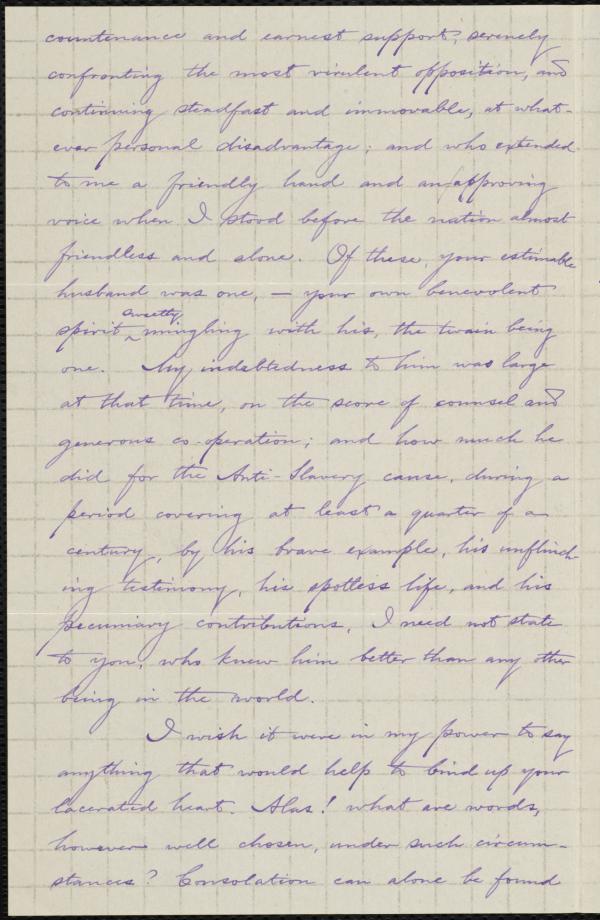 countenance and earnest support; serenely
confronting the most virulent opposition, and
continuing steadfast and immovable, at what-
ever personal disadvantage; and who extended
to me a friendly hand and an approving
voice when I stood before the nation almost
friendless and alone. Of these, your estimable
husband was one, — your own benevolent
sweetly
spirit ‸ mingling with his, the twain being
one. My indebtedness to him was large
at that time, on the score of counsel and
generous co-operation; and how much he
did for the Anti-Slavery cause, during a
period covering at least a quarter of a
century, by his brave example, his unflinch-
ing testimony, his spotless life, and his
pecuniary contributions, I need not state
to you, who knew him better than any other
being in the world.
I wish it were in my power to say
anything that would help to bind up your
lacerated heart. Alas! what are words,
however well chosen, under such circum-
stances? Consolation can alone be found